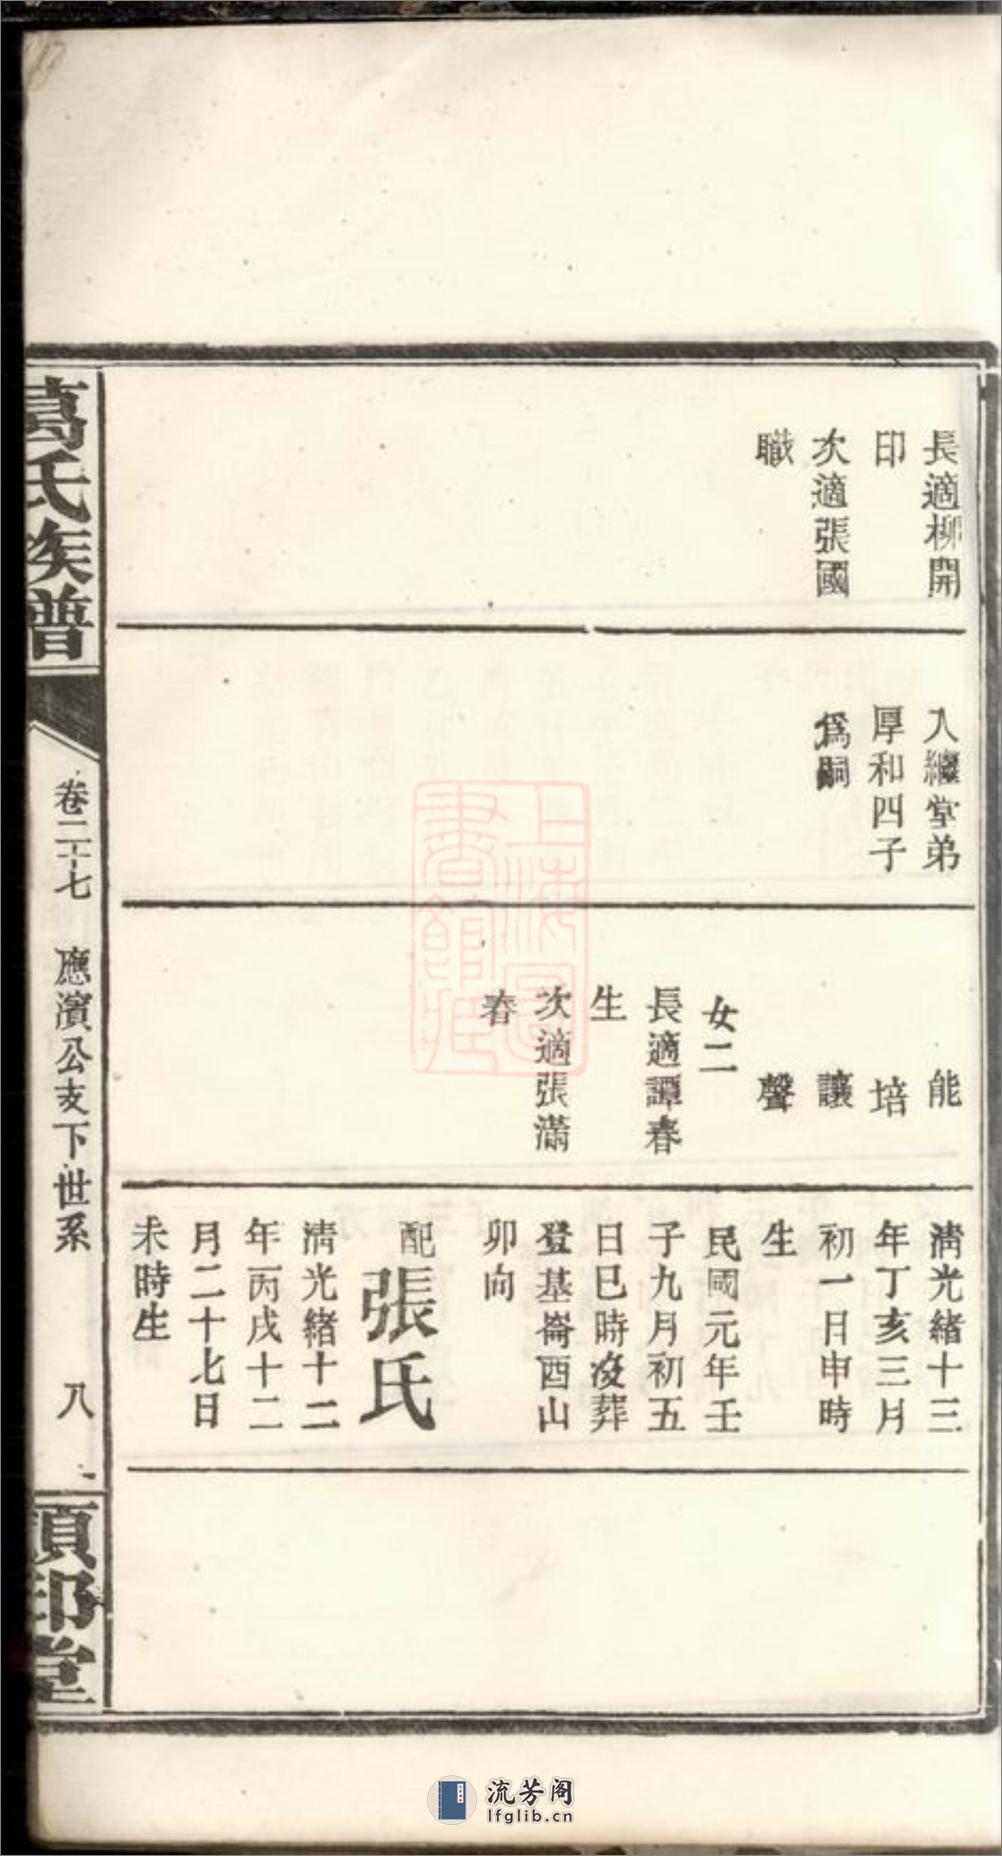 長適柳開
印
次適張國
職
入繼堂弟
厚和四子
爲嗣
能
培
讓
聲
女二
長適譚春
生
次適張滿
春
清光緒十三
年丁亥三月
初一日申時
生
民國元年壬
子九月初五
日巳時沒葬
登基崙酉山
卯向
配張氏
清光緒十二
年丙戌十二
月二十七日
未時生
葛氏族譜
卷二十七 應濱公支下世系 八
頁邨堂
上海圖書館藏
流芳阁
lfglib.cn